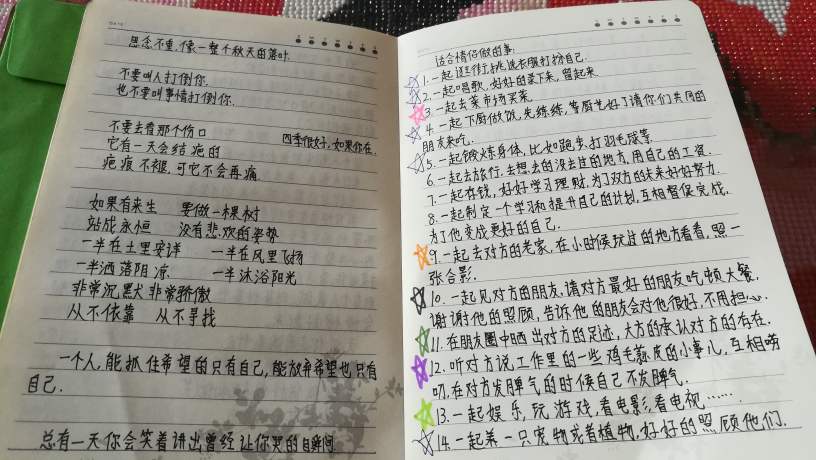 思念不重,像一整个秋天的落叶.
不要叫人打倒你.
也不要叫事情打倒你.
不要去看那个伤口
它有一天会结疤的
疤痕不褪,可它不会再痛
四季很好,如果你在.
如果有来生 要做一棵树
站成永恒 没有悲欢的姿势
一半在土里安详 一半在风里飞扬
一半洒落阴凉 一半沐浴阳光
非常沉默非常骄傲
从不依靠 从不寻找
一个人,能抓住希望的只有自己,能放弃希望也只有
自己.
总有一天你会笑着讲出曾经让你哭的瞬间
适合情侣做的事:
1.一起逛街,挑选衣服打扮自己.
2.一起唱歌,好好的录下来,留起来
3.一起去菜市场买菜.
4.一起下厨做饭,先练练,等厨艺好了请你们共同的
朋友来吃.
5.一起锻炼身体,比如跑步,打羽毛球等
6.一起去旅行,去想去的没去过的地方,用自己的工资.
7.一起存钱,好好学习理财,为了双方的未来好好努力.
8.一起制定一个学习和提升自己的计划,互相督促完成,
为了他变成更好的自己.
9.一起去对方的老家,在小时候玩过的地方看看,照一
张合影.
10.一起见对方的朋友,请对方最好的朋友吃顿大餐,
谢谢他的照顾,告诉他的朋友会对他很好,不用担心.
11.在朋友圈中晒出对方的足迹,大方的承认对方的存在.
12.听对方说工作里的一些鸡毛蒜皮的小事儿,互相唠
叨,在对方发脾气的时候自己不发脾气.
13.一起娱乐,玩游戏,看电影,看电视……
14.一起养一只宠物或者植物,好好的照顾他们.